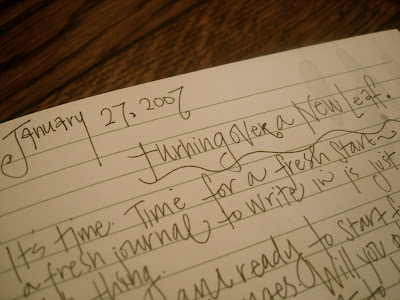 January 27, 2007
Turning over a New Leaf.
It's time. Time for a fresh start
a fresh journal to write in is just
thing.
I am ready to start
Will you
to